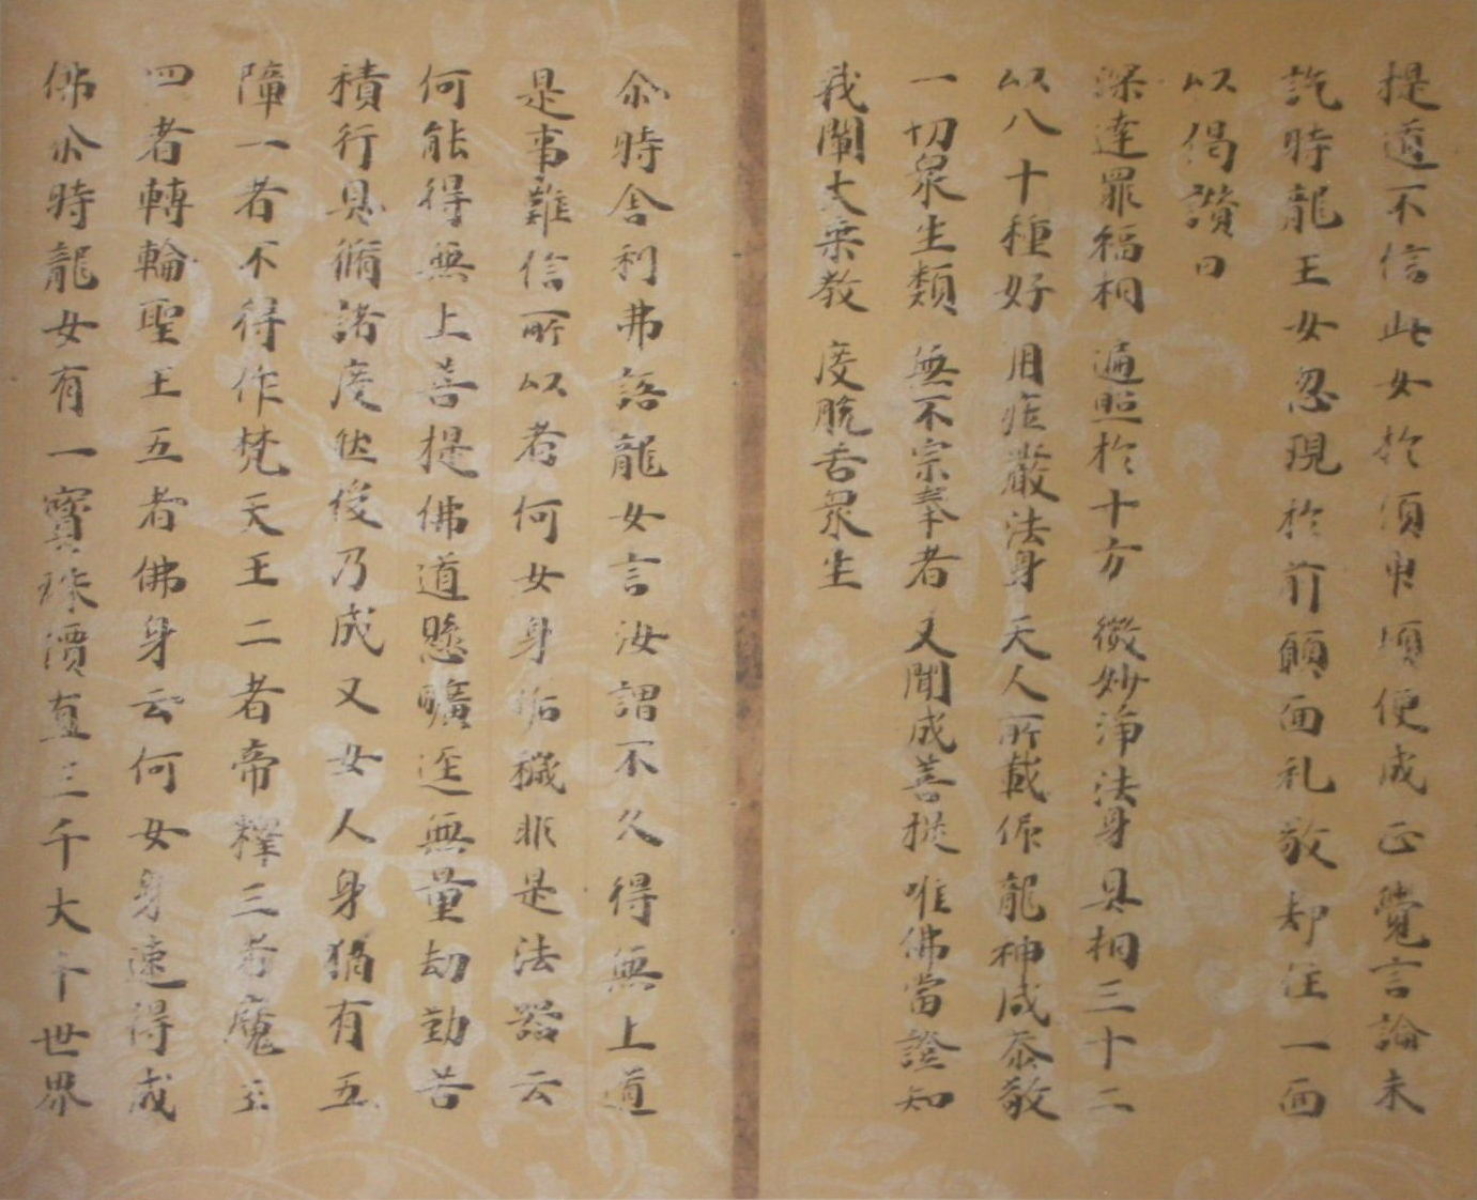 提道不信此女於須臾頃便成正覺言論未
訖時龍王女忽現於前頭面礼敬却住一面
以偈讚曰
深達罪福相 遍照於十方 微妙浄法身 具相三十二
以八十種好 用庄嚴法身 天人所戴仰 龍神咸恭敬
一切衆生類 無不宗奉者 又聞成菩提 唯佛當證知
我闡大乗教 度脱苦衆生
尒時舍利弗語龍女言汝謂不久得無上道
是事難信所以者何女身垢穢非是法器云
何能得無上菩提佛道懸曠逕無量劫勤苦
積行具脩諸度然後乃成又女人身猶有五
障一者不得作梵天王二者帝釋三者魔王
四者轉輪聖王五者佛身云何女身速得成
佛尒時龍女有一寳珠價直三千大千世界